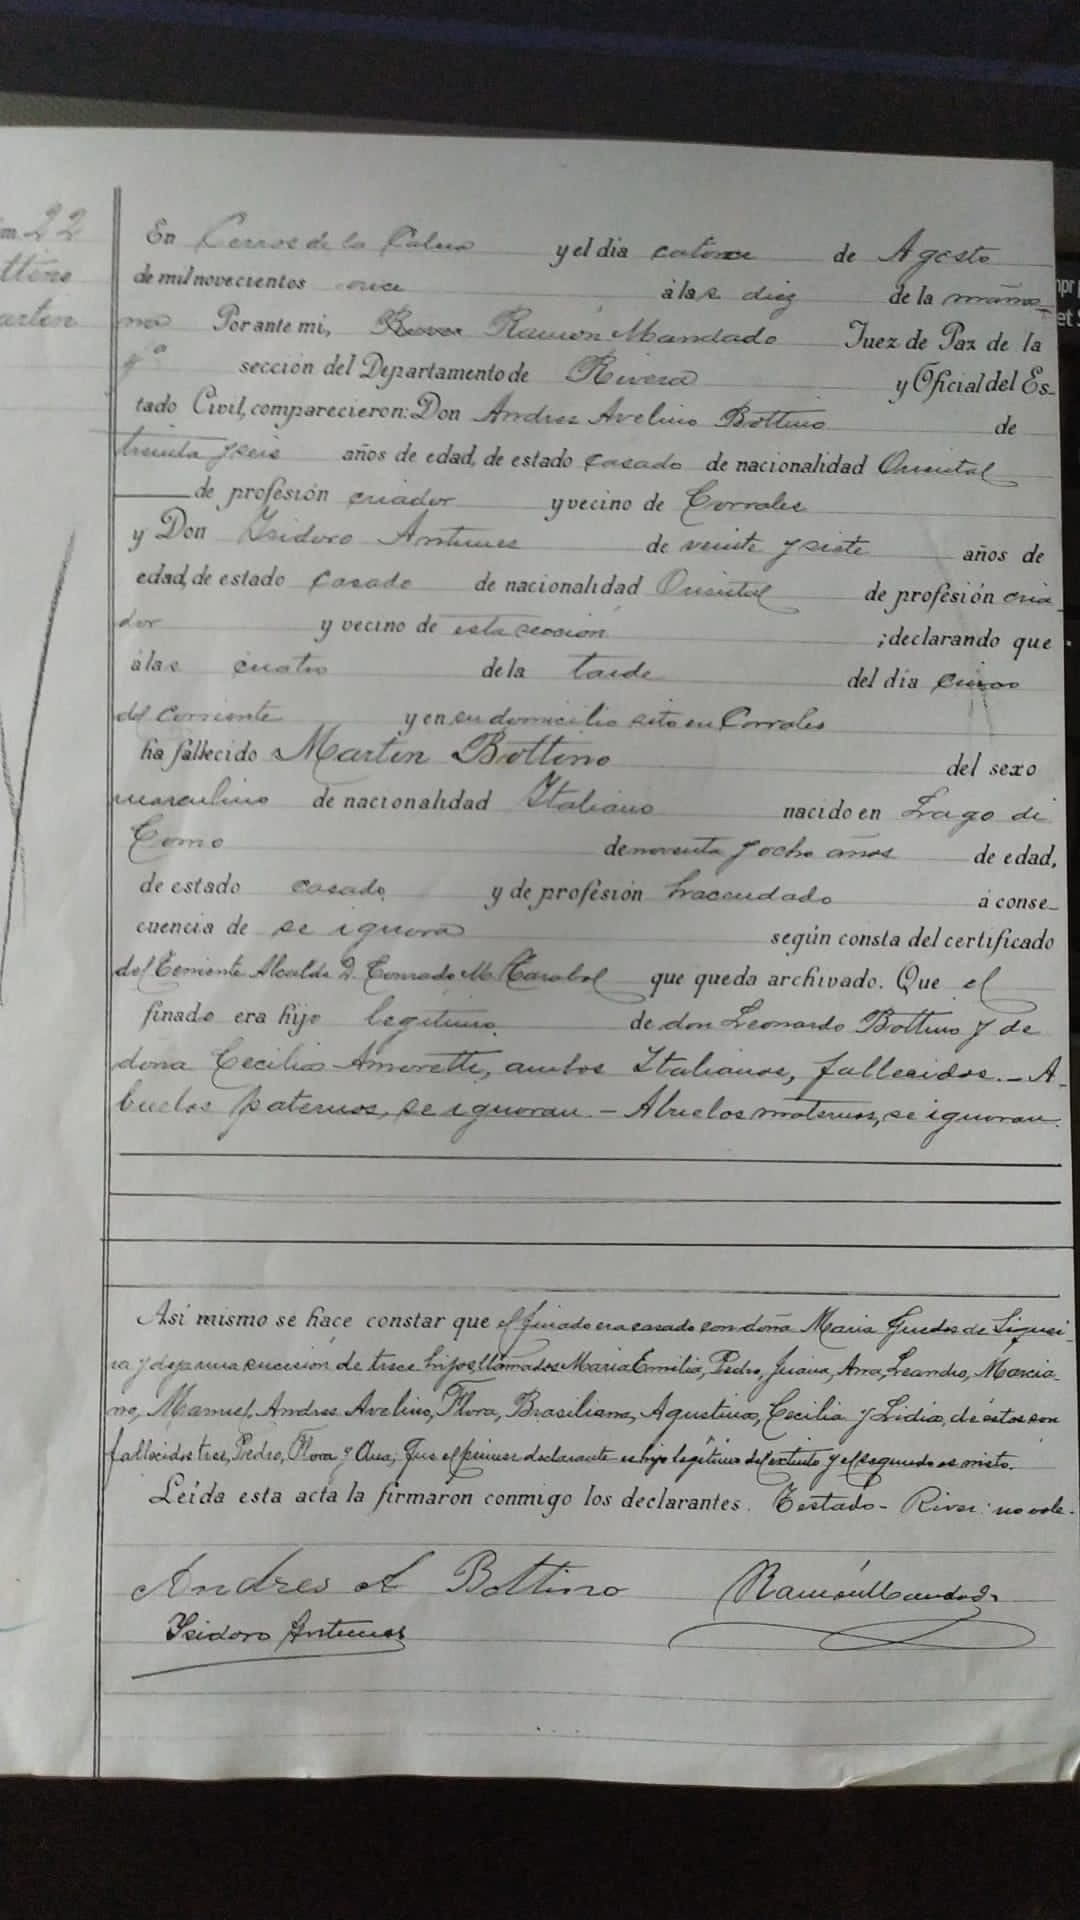 m. 22
ttino
artin
En Cerros de la Calera y el día catorce de Agosto
de mil novecientos once á las diez de la maña-
na Por ante mi, Ramón Mandado Juez de Paz de la
4ª sección del Departamento de Rivera y Oficial del Es-
tado Civil, comparecieron: Don Andres Avelino Bottino de
treinta y seis años de edad, de estado casado de nacionalidad Oriental
de profesión criador y vecino de Corrales
y Don Isidoro Antunes de veinte y siete años de
edad, de estado casado de nacionalidad Oriental de profesión cria-
dor y vecino de esta sección ; declarando que
á las cuatro de la tarde del día
del corriente y en su domicilio sito en Corrales
ha fallecido Martin Bottino del sexo
masculino de nacionalidad Italiano nacido en Lago di
Como de noventa y ocho años de edad,
de estado casado y de profesión hacendado á conse-
cuencia de se ignora según consta del certificado
del Teniente Alcalde D. Conrado M. que queda archivado. Que el
finado era hijo legitimo de don Leonardo Bottino y de
doña Cecilia Amoretti, ambos Italianos, fallecidos. - A-
buelos paternos, se ignoran. - Abuelos maternos, se ignoran.
Así mismo se hace constar que el finado era casado con doña Maria Guedes de Siquei-
ra y deja una sucesión de trece hijos, llamados Maria Emilia, Pedro, Juana, Ana, Leandro, Marcia-
no, Manuel, Andres Avelino, Flora, Brasiliana, Agustina, Cecilia y Lidia, de éstos son
fallecidos tres, Pedro, Flora y Ana; Que el primer declarante es hijo legitimo del extinto y el segundo es nieto.
Leída esta acta la firmaron conmigo los declarantes. Testado - River: no vale.
Andres A Bottino Ramón Mandado
Isidoro Antunes